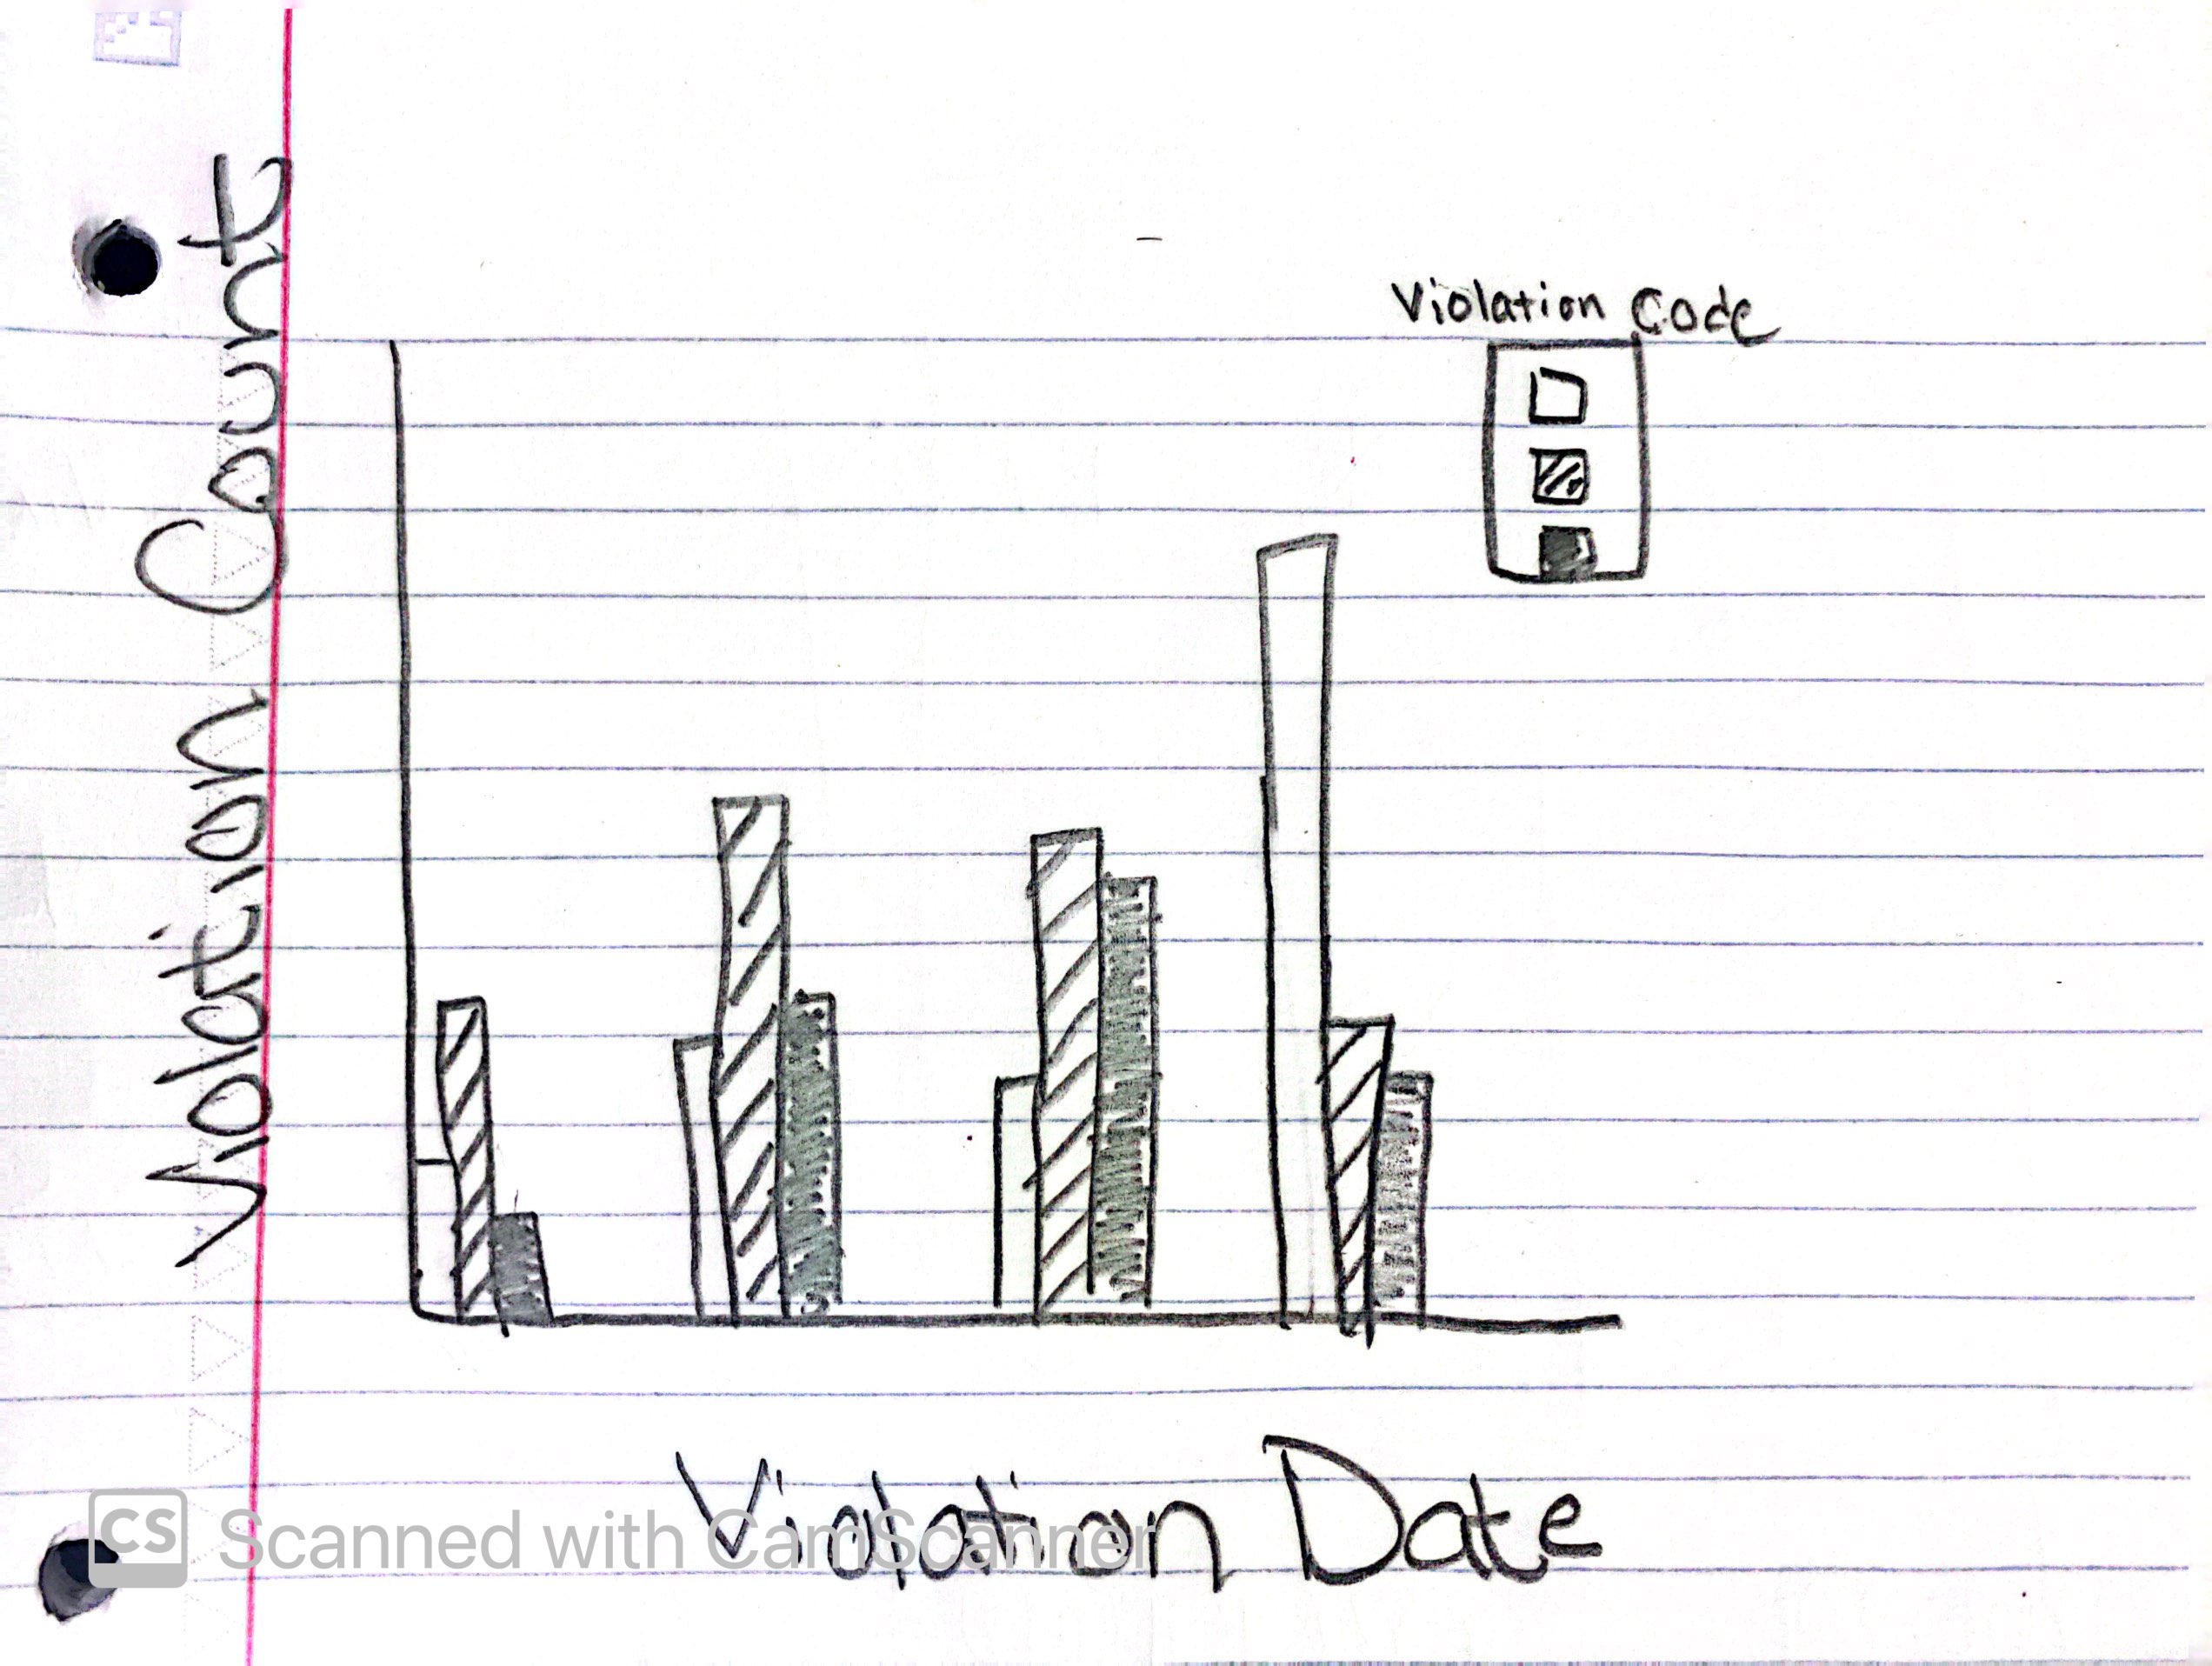 Violation Count
Violation Code
Violation Date
CS Scanned with CamScanner